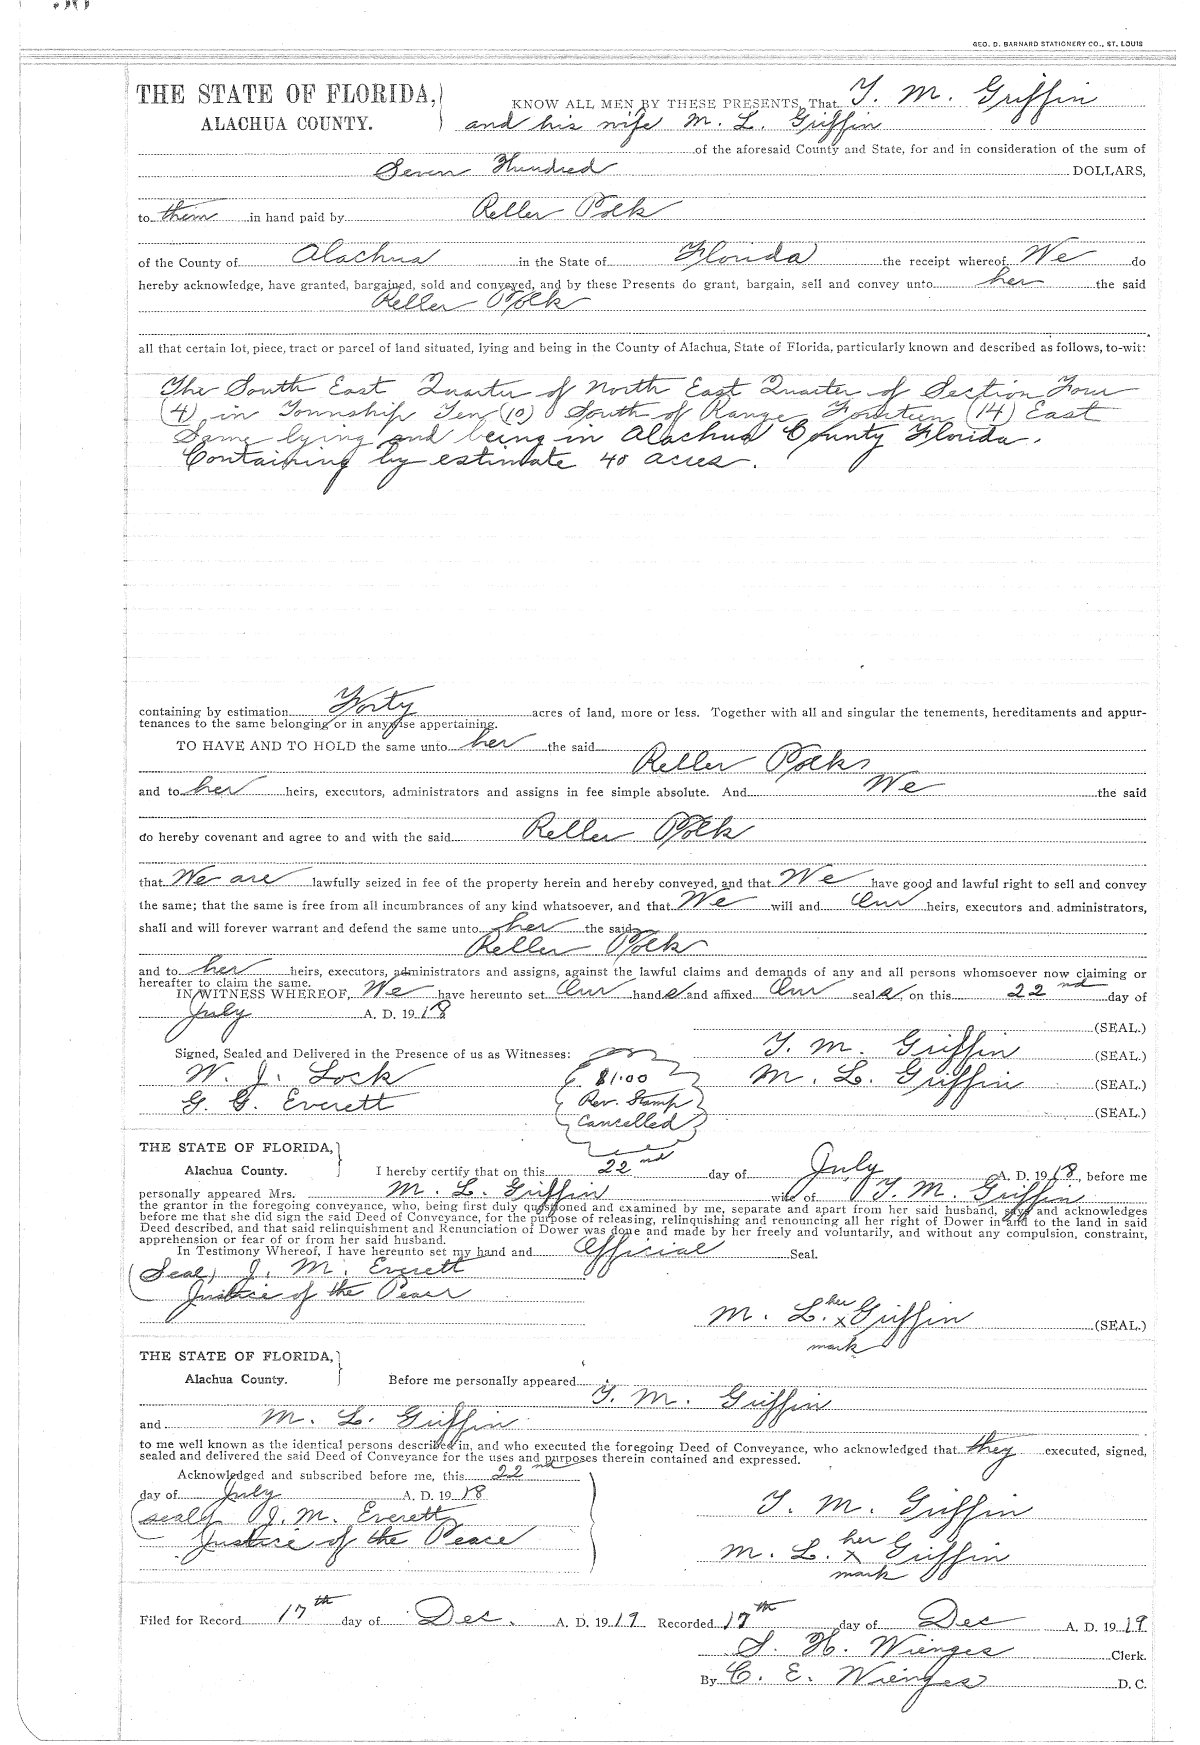 GEO. D. BARNARD STATIONERY CO., ST. LOUIS
THE STATE OF FLORIDA,
ALACHUA COUNTY.
KNOW ALL MEN BY THESE PRESENTS, That T. M. Griffin
and his wife M. L. Griffin
of the aforesaid County and State, for and in consideration of the sum of
Seven Hundred DOLLARS,
to them in hand paid by Reller Polk
of the County of Alachua in the State of Florida the receipt whereof We do
hereby acknowledge, have granted, bargained, sold and conveyed, and by these Presents do grant, bargain, sell and convey unto her the said
Reller Polk
all that certain lot, piece, tract or parcel of land situated, lying and being in the County of Alachua, State of Florida, particularly known and described as follows, to-wit:
The South East Quarter of North East Quarter of Section Four
(4) in Township Ten (10) South of Range Fourteen (14) East
Same lying and being in Alachua County Florida.
Containing by estimate 40 acres.
containing by estimation Forty acres of land, more or less. Together with all and singular the tenements, hereditaments and appur-
tenances to the same belonging or in anywise appertaining.
TO HAVE AND TO HOLD the same unto her the said
Reller Polk
and to her heirs, executors, administrators and assigns in fee simple absolute. And We the said
do hereby covenant and agree to and with the said Reller Polk
that We are lawfully seized in fee of the property herein and hereby conveyed, and that We have good and lawful right to sell and convey
the same; that the same is free from all incumbrances of any kind whatsoever, and that We will and Our heirs, executors and administrators,
shall and will forever warrant and defend the same unto her the said
Reller Polk
and to her heirs, executors, administrators and assigns, against the lawful claims and demands of any and all persons whomsoever now claiming or
hereafter to claim the same.
IN WITNESS WHEREOF, We have hereunto set Our hands and affixed Our seals, on this 22nd day of
July A. D. 1918
(SEAL.)
Signed, Sealed and Delivered in the Presence of us as Witnesses: T. M. Griffin (SEAL.)
W. J. Lock $1.00 M. L. Griffin (SEAL.)
G. G. Everett Rev. Stamp (SEAL.)
Cancelled
THE STATE OF FLORIDA,
Alachua County. I hereby certify that on this 22nd day of July A. D. 1918, before me
personally appeared Mrs. M. L. Griffin wife of T. M. Griffin
the grantor in the foregoing conveyance, who, being first duly questioned and examined by me, separate and apart from her said husband, says and acknowledges
before me that she did sign the said Deed of Conveyance, for the purpose of releasing, relinquishing and renouncing all her right of Dower in and to the land in said
Deed described, and that said relinquishment and Renunciation of Dower was done and made by her freely and voluntarily, and without any compulsion, constraint,
apprehension or fear of or from her said husband.
In Testimony Whereof, I have hereunto set my hand and Official Seal.
(Seal) J. M. Everett
Justice of the Peace
her
M. L. x Griffin (SEAL.)
mark
THE STATE OF FLORIDA,
Alachua County. Before me personally appeared
T. M. Griffin
and M. L. Griffin
to me well known as the identical persons described in, and who executed the foregoing Deed of Conveyance, who acknowledged that they executed, signed,
sealed and delivered the said Deed of Conveyance for the uses and purposes therein contained and expressed.
Acknowledged and subscribed before me, this 22nd
day of July A. D. 1918
(seal) J. M. Everett T. M. Griffin
Justice of the Peace
her
M. L. x Griffin
mark
Filed for Record 17th day of Dec. A. D. 1919 Recorded 17th day of Dec A. D. 1919
S. H. Wienges Clerk.
By C. E. Wienges D. C.